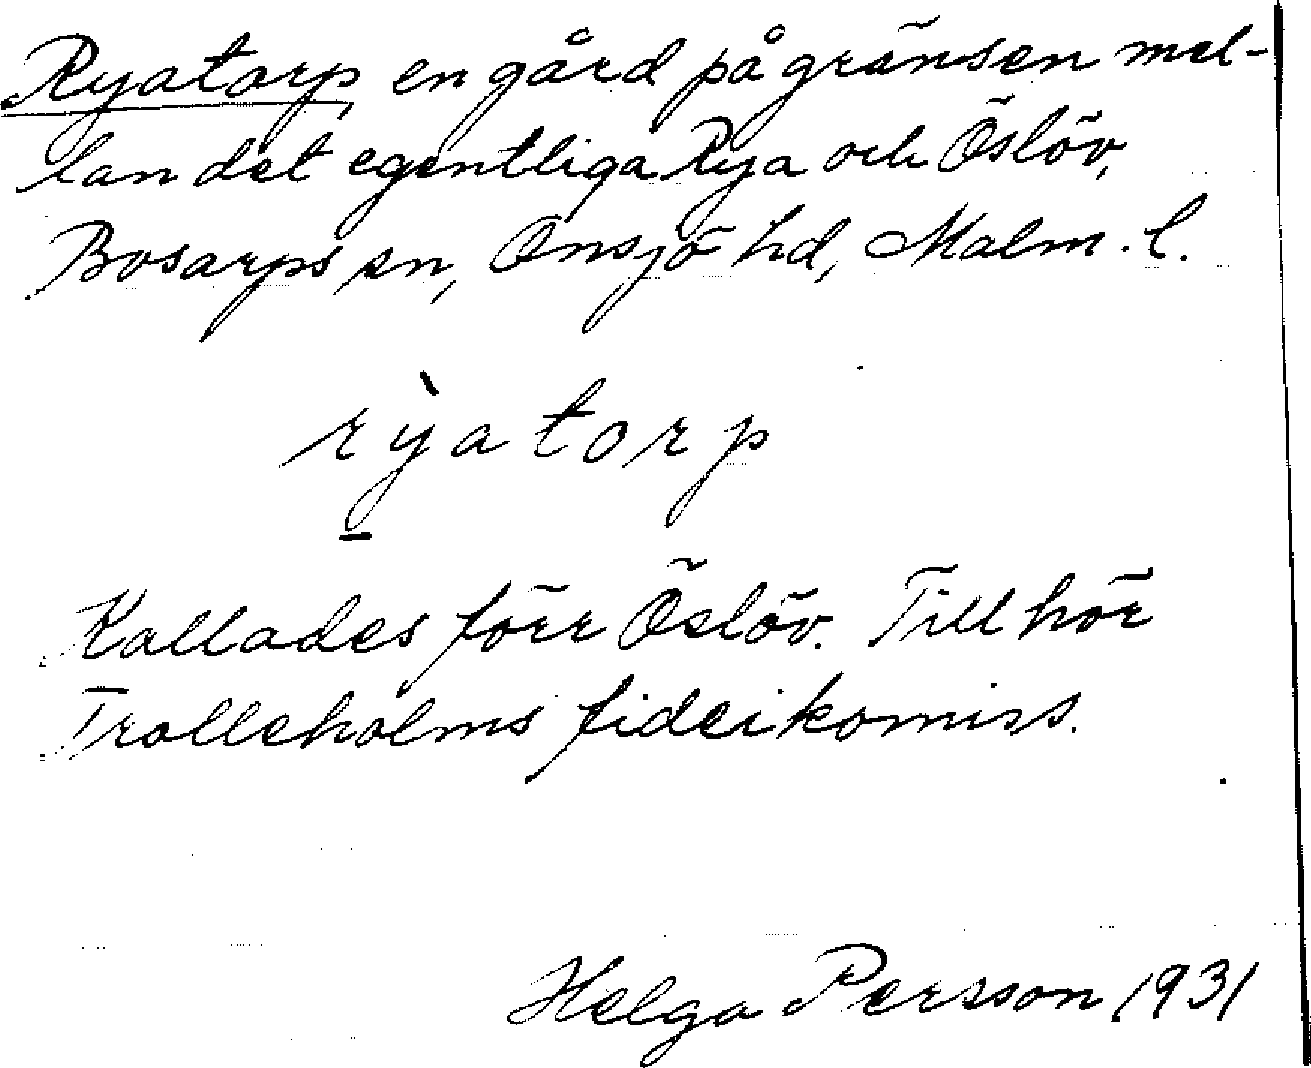 Ryatorp, en gård på gränsen mel-
lan det egentliga Rya och Öslöv,
Bosarps sn, Onsjö hd, Malm. l.
rỳatorp
Kallades förr Öslöv. Tillhör
Trolleholms fideikomiss.
Helga Persson 1931